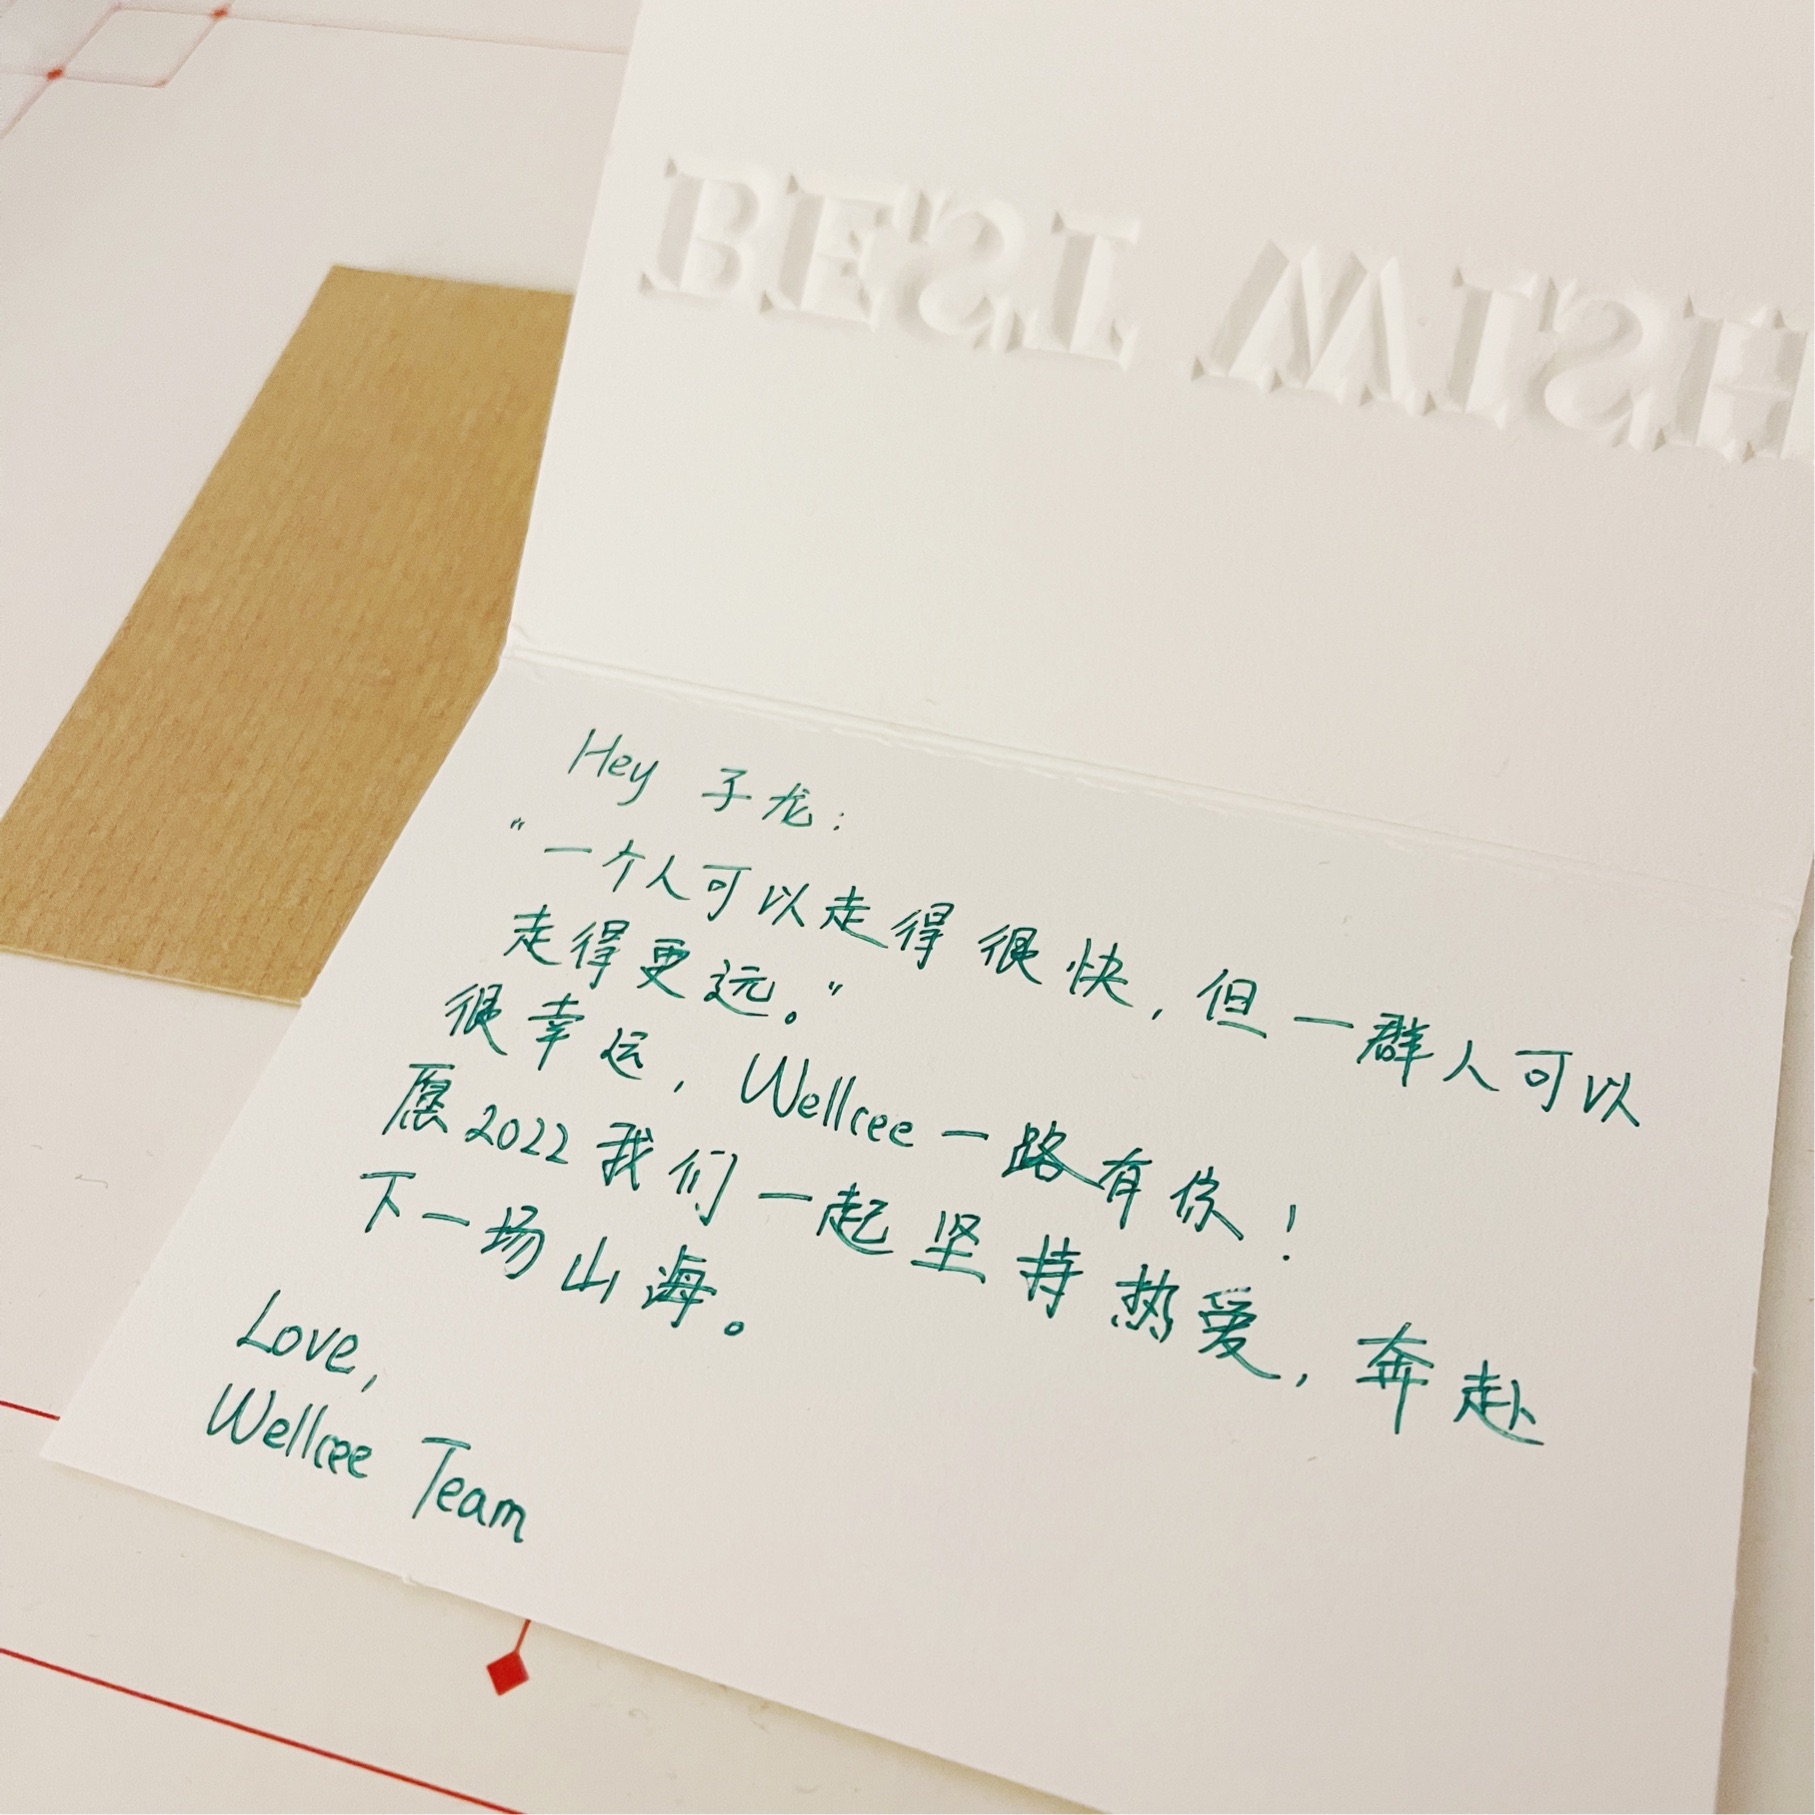 BEST WISH
Hey 子龙：
“一个人可以走得很快，但一群人可以
走得更远。”
很幸运，Wellcee一路有你！
愿2022我们一起坚持热爱，奔赴
下一场山海。
Love,
Wellcee Team